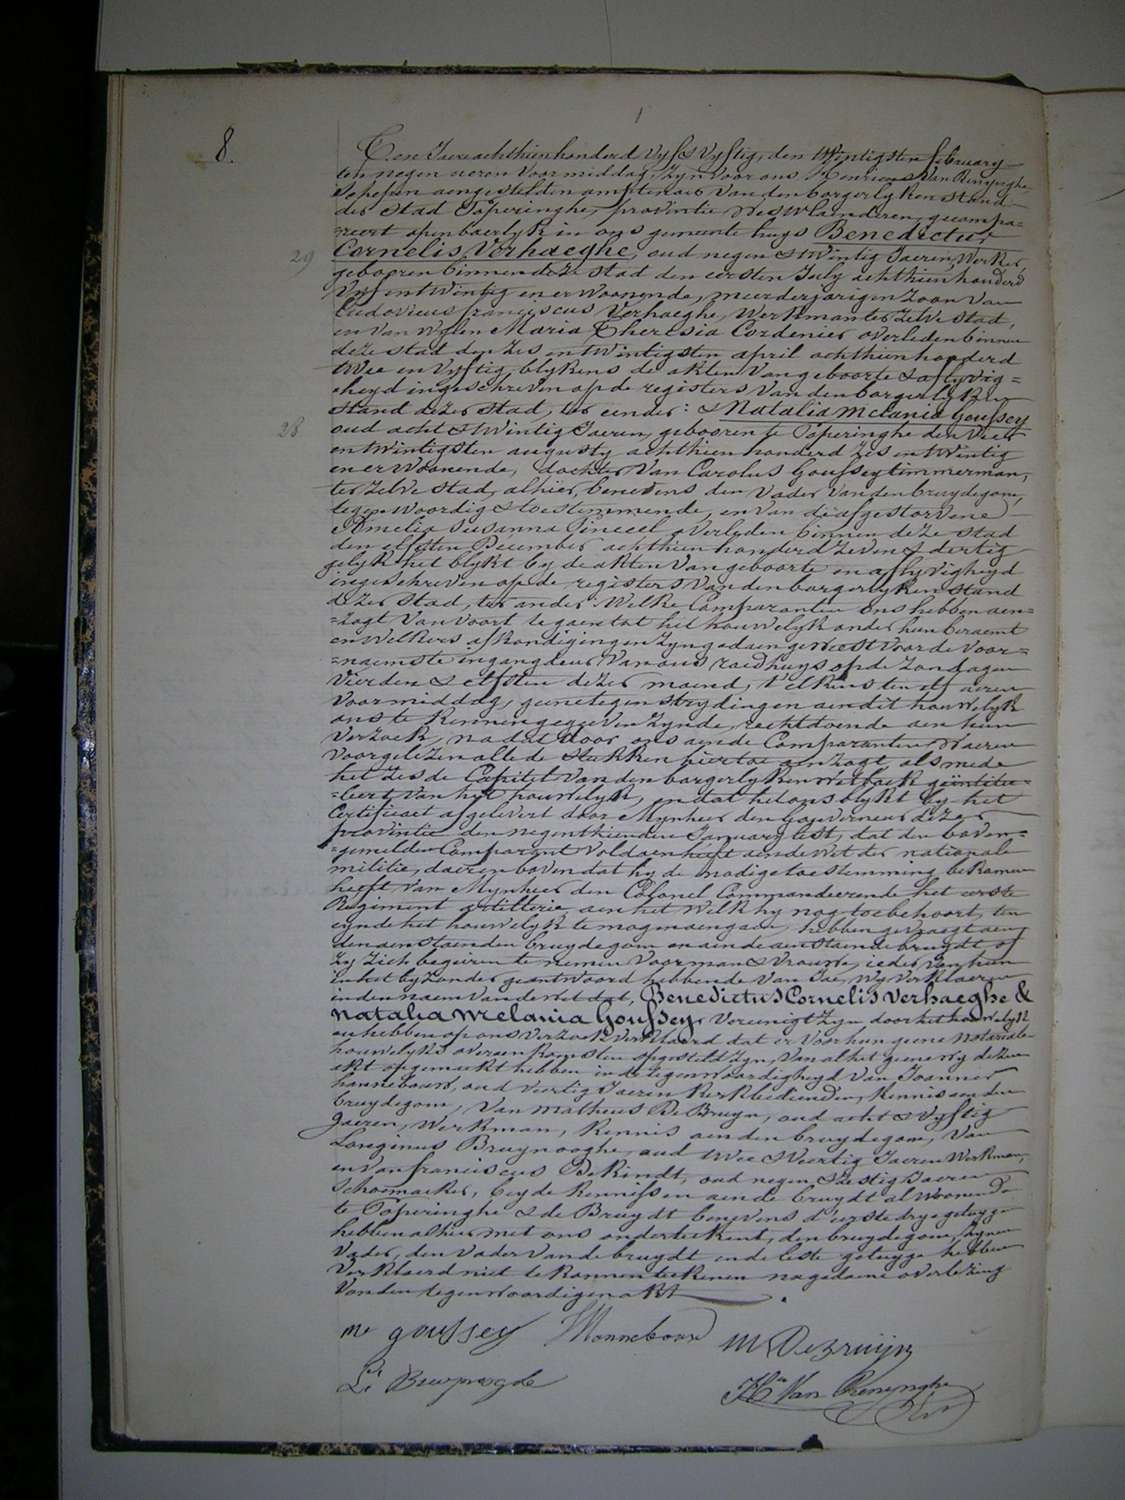 8.
Ten Jaere achthien honderd vyf & vyftig, den twintigsten february
ten negen ueren voormiddag, zyn voor ons Henricus Van Renynghe
schepen aengestelden amptenaer van den borgerlyken stand
der stad Poperinghe, provintie Westvlaenderen, gecompa=
=reert openbaerlyk in ons gemeente huys Benedictus
29 Cornelis Verhaeghe, oud negen & twintig Jaeren, Werker
gebooren binnen deze stad den eersten July achthien honderd
vyf entwintig en er woonende, meerderjarigen zoon van
Ludovicus franciscus Verhaeghe, Werkman ter zelve stad,
en van wylen Maria Theresia Cordenier overleden binnen
deze stad den zes entwintigsten april achthien honderd
twee en vyftig, blykens de akten van geboorte & aflyvig=
=heyd ingeschreven op de registers van den borgerlyken
stand dezer stad, ter eender: & Natalia Melania Goussey
28 oud acht & twintig Jaeren, gebooren te Poperinghe den vier
entwintigsten augusty achthien honderd zes entwintig
en er woonende, dochter van Carolus Goussey timmerman,
ter zelve stad, alhier, benevens den vader van den bruydegom,
tegenwoordig & toestemmende, en van de afgestorvene
Amelia Susanna Pineeel overleden binnen deze stad
den elfsten December achthien honderd zeven & dertig
gelyk het blykt by de akten van geboorte en aflyvigheyd
ingeschreven op de registers van den borgerlyken stand
dezer stad, ter ander. Welke Comparanten ons hebben aen=
=zogt van voort te gaen tot het houwelyk onder hun beraemt
en welkers afkondigingen zyn gedaen geweest voor de voor=
=naemste ingangdeur van ons raedhuys op de zondagen
vierden & elfsten dezer maend, telkens ten elf ueren
voormiddag, geene tegenstrydingen aen dit houwelyk
ons te kennen gegeven zynde, rechtdoende aen hun
verzoek, nadat door ons aen de Comparanten waeren
voorgelezen alle de stukken hiertoe aenzogt, als mede
het zesde Capittel van den borgerlyken wetboek geïntitu=
=leert van het houwelyk, en dat het ons blykt by het
Certificaet afgelevert door Mynheer den Gouverneur dezer
provintie den negenthienden January lest, dat den boven=
=gemelden Comparant voldaen heeft aen de wet der nationale
militie, daerenboven dat hy de noodige toestemming bekomen
heeft van Mynheer den Colonel Commandeerende het eerste
Regiment artillerie aen het welk hy nog toebehoort, ten
eynde het houwelyk te mogen aengaen, hebben gevraegt aen
den aenstaenden bruydegom en aen de aenstaende bruydt of
zy zich begeeren te nemen voor man & vrouw, ieder van hun
in het byzonder geantwoord hebbende van Jae, wy verklaeren
in den naem van de wet dat, Benedictus Cornelis Verhaeghe &
Natalia Melania Goussey vereenigt zyn door het houwelyk
en hebben op ons verzoek verklaerd dat er voor hun geene notariale
houwelyks overeenkomsten opgesteld zyn, van al het geene wy dezen
akt opgemaekt hebben in de tegenwoordigheyd van Joannes
hannebouw, oud veertig Jaeren Kerkbedienden, kennis aen den
bruydegom, van Matheus De Bruyn, oud acht & vyftig
Jaeren, Werkman, kennis aen den bruydegom, van
Longinus Bruynooghe, oud twee & veertig Jaeren Werkman,
en van franciscus De Kindt, oud negen & zestig Jaeren
schoemaeker, beyde kennissen aen de bruydt al woonende
te Poperinghe & de Bruydt benevens d'eerste drye getuygen
hebben alhier met ons onderteekent, den bruydegom, zynen
vader, den vader van de bruydt en de leste getuyge hebben
verklaerd niet te konnen teekenen na gedaene overlezing
van den tegenwoordigen akt
me goussey Hannebouw M De Bruijn
Li
Hri Van Renynghe